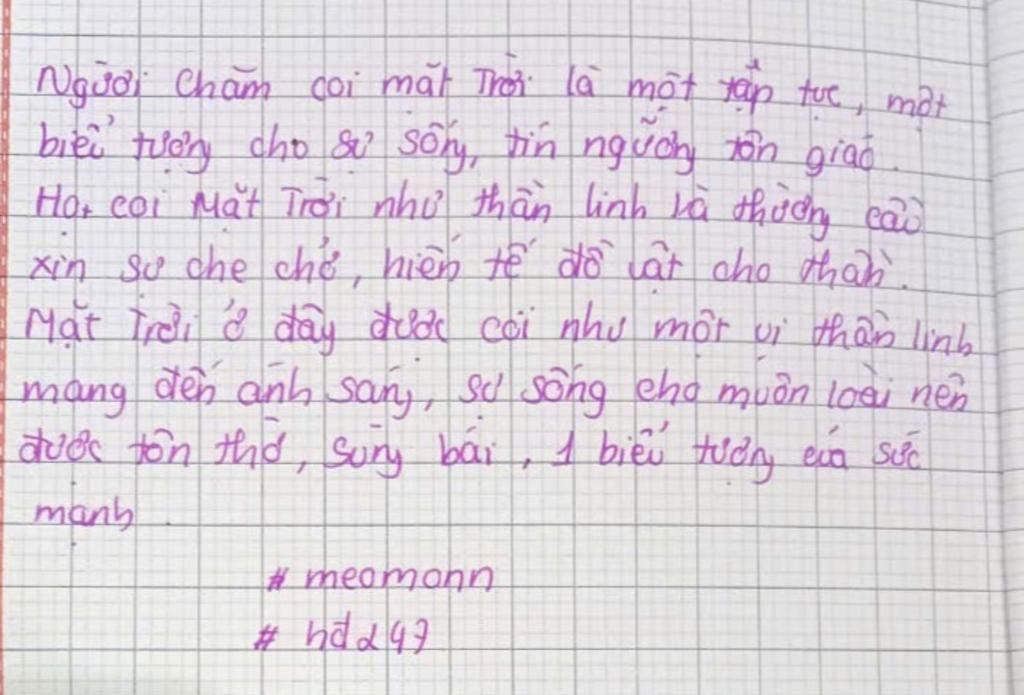 Người Chăm coi mặt Trời là một tập tục, một
biểu tượng cho sự sống, tín ngưỡng tôn giáo.
Họ coi Mặt Trời như thần linh và thường cầu
xin sự che chở, hiến tế đồ vật cho thần.
Mặt Trời ở đây được coi như một vị thần linh
mang đến ánh sáng, sự sống cho muôn loài nên
được tôn thờ, sùng bái, 1 biểu tượng của sức
mạnh.
# meomonn
# hd247